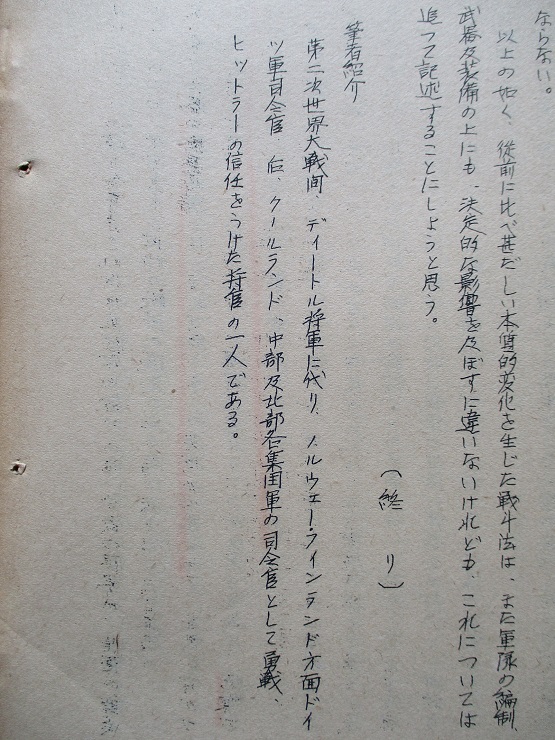 ならない。
以上の如く、従前に比べ甚だしい本質的変化を生じた戦斗法は、また軍隊の編制、
武器及装備の上にも、決定的な影響を及ぼすに違いないけれども、これについては
追つて記述することにしようと思う。
（終り）
筆者紹介
第二次世界大戦間、ディートル将軍に代り、ノルウェー・ラインランド方面ドイ
ツ軍司令官、后、クールランド、中部及北部各集団軍の司令官として勇戦、
ヒットラーの信任をうけた将官の一人である。